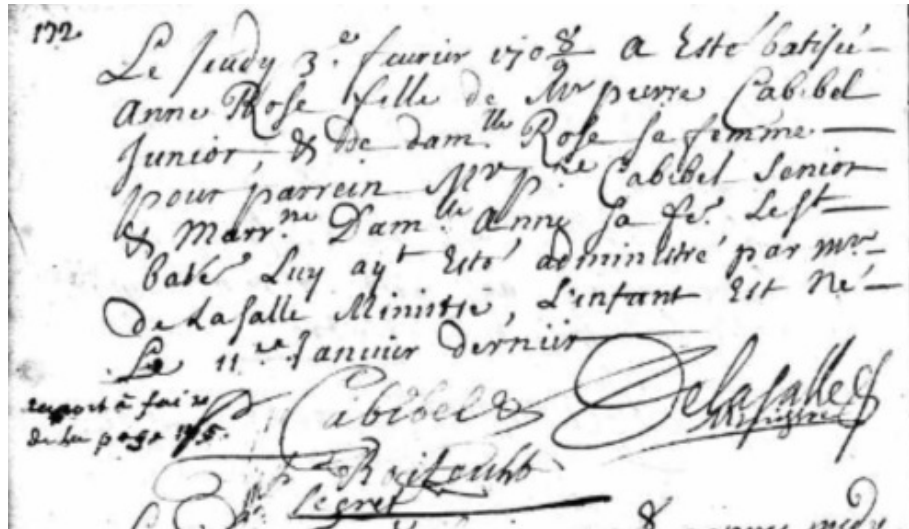 172
Le Jeudy 3.e fevrier 170 8/9 a Esté batisée
Anne Rose fille de Mr pierre Cabibel
Junior, & de dam.lle Rose sa femme
pour parrein Mr P.re Cabibel senior
& Marr.ne Dam.lle Anne sa fe. Le st
batê Luy ayt Esté administré par mr
De Lasalle Ministre, L'enfant Est Né
Le 11.e Janvier dernier
raport à faire
de la page 175.
Cabibel
Delasalle
Ministre
secret